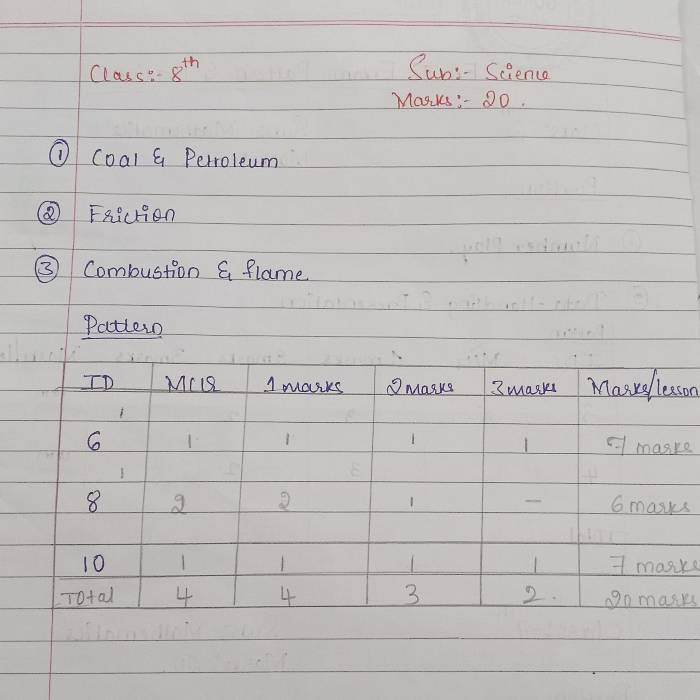 Class:- 8th Sub:- Science
Marks:- 20.
① Coal & Petroleum
② Friction
③ Combustion & flame
Pattern
ID MCQ 1 marks 2 marks 3 marks Marks/lesson
6 1 1 1 1 7 marks
8 2 2 1 - 6 marks
10 1 1 1 1 7 marks
Total 4 4 3 2. 20 marks